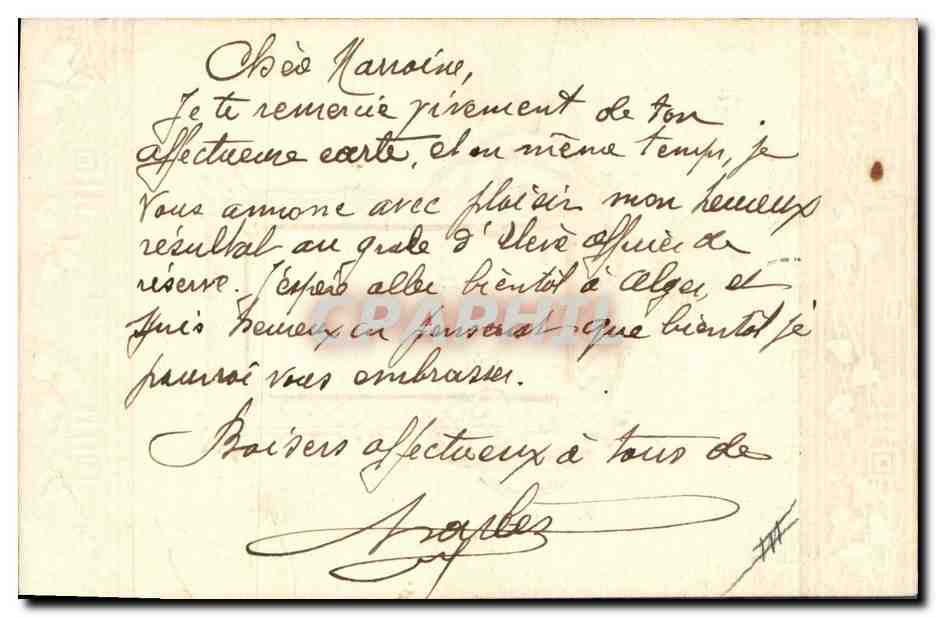 Chère Marraine,
Je te remercie vivement de ton
affectueuse carte, et en même temps, je
vous annonce avec plaisir mon heureux
résultat au grade d'Elève officier de
réserve. J'espère aller bientôt à Alger, et
suis heureux en pensant que bientôt je
pourrai vous embrasser.
Baisers affectueux à tous de
CPAPHIL